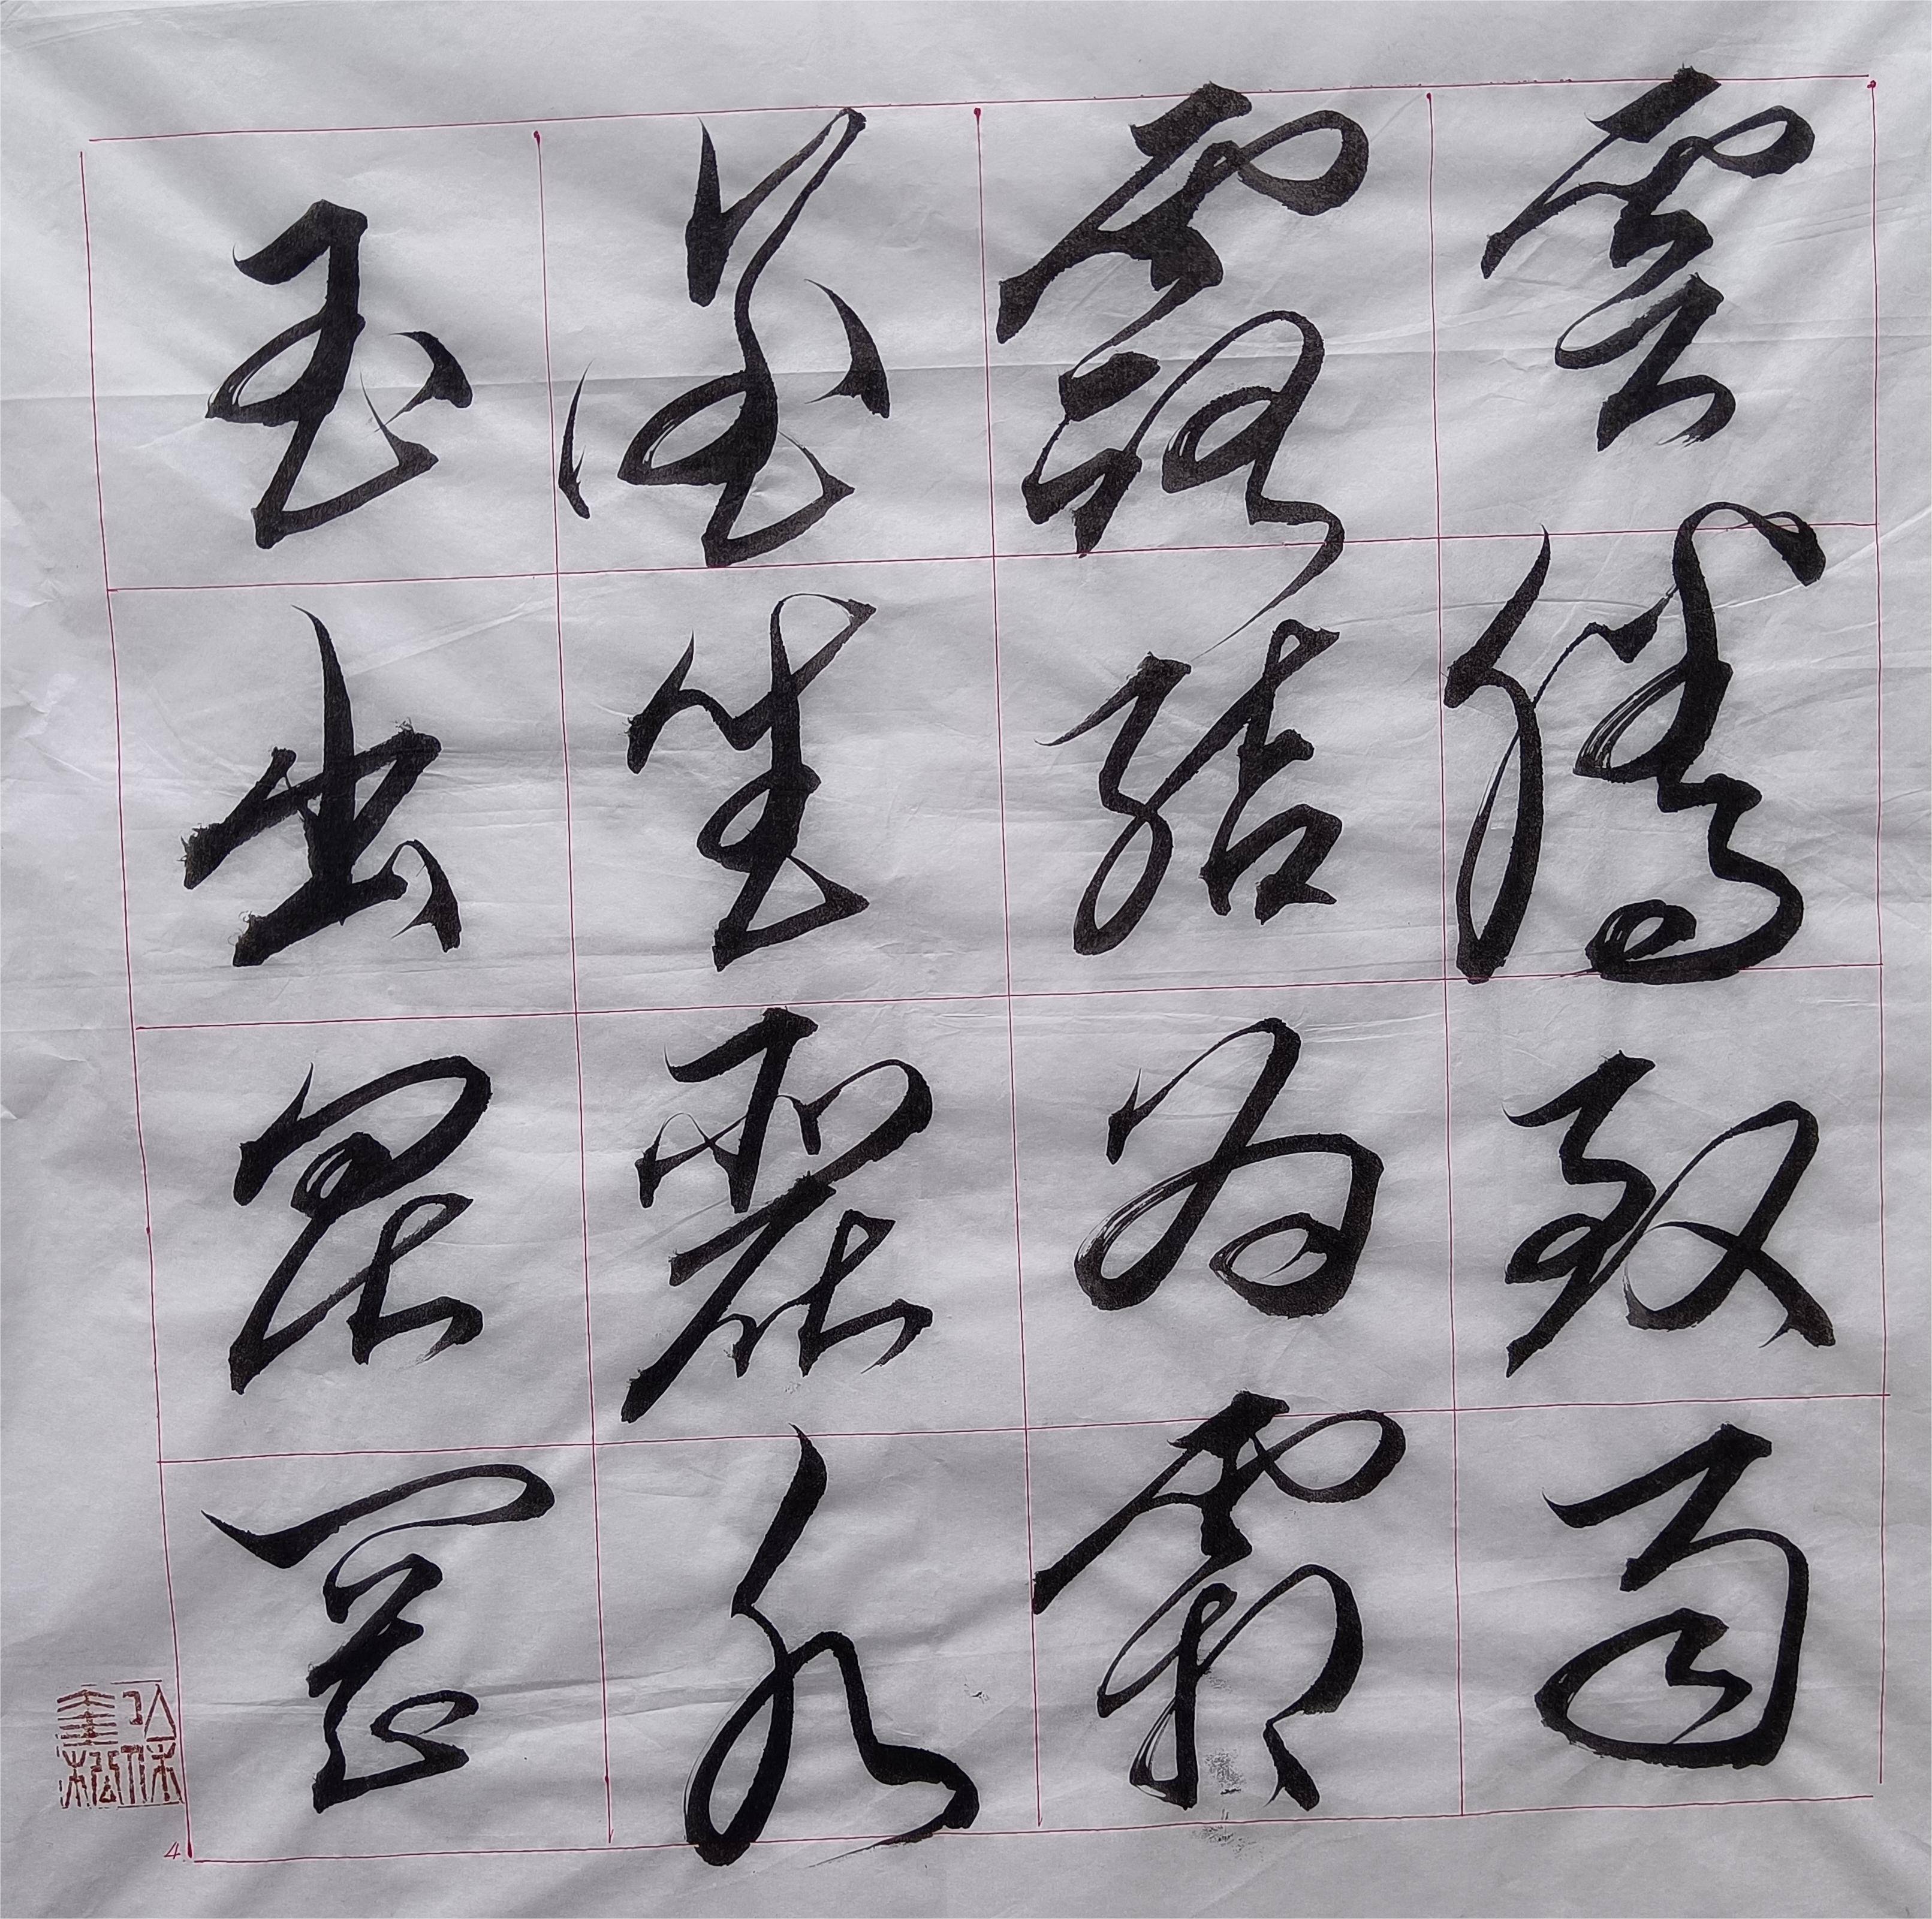 雲騰致雨
露結為霜
金生麗水
玉出崑岡
4